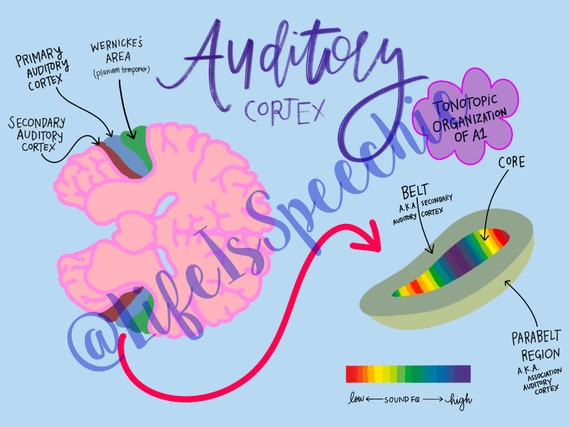 Auditory
CORTEX
PRIMARY
AUDITORY
CORTEX
WERNICKE'S
AREA
(planum temporale)
SECONDARY
AUDITORY
CORTEX
TONOTOPIC
ORGANIZATION
OF A1
CORE
BELT
A.K.A. SECONDARY
AUDITORY CORTEX
PARABELT
REGION
A.K.A.
ASSOCIATION
AUDITORY
CORTEX
low SOUND FQ high
@LifeIsSpeechie